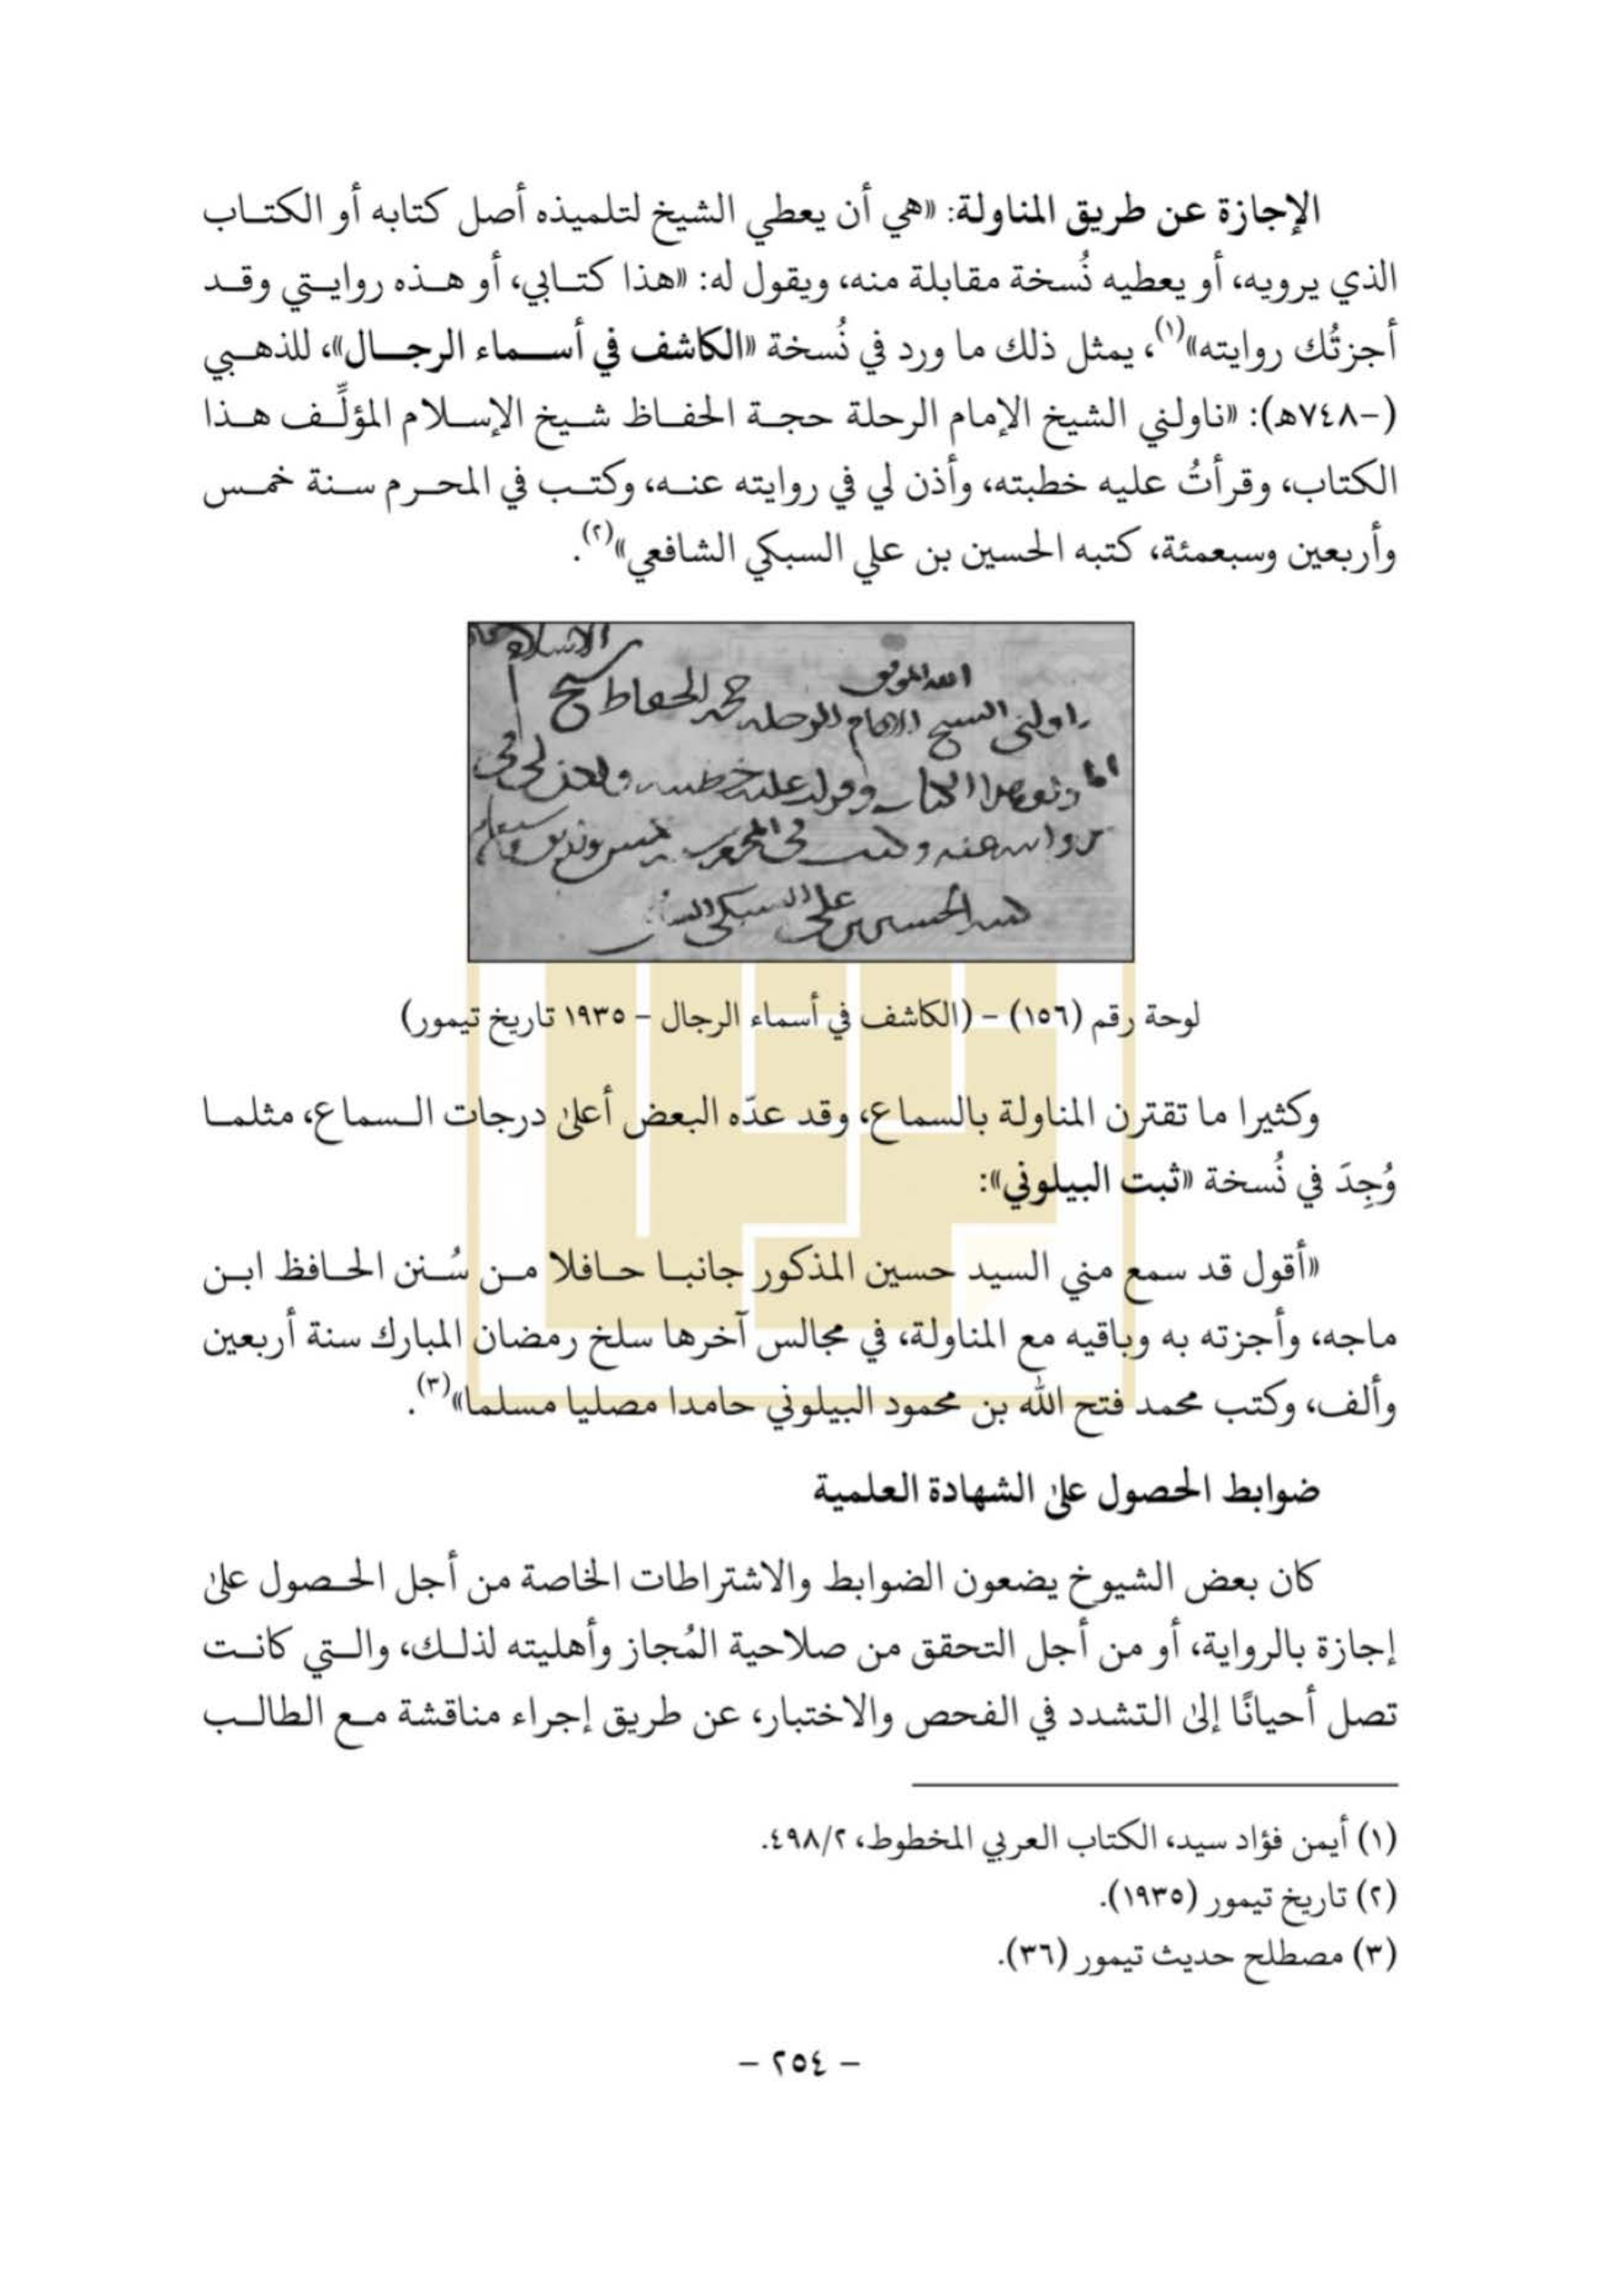 الإجازة عن طريق المناولة: «هي أن يعطي الشيخ لتلميذه أصل كتابه أو الكتاب
الذي يرويه، أو يعطيه نُسخة مقابلة منه، ويقول له: «هذا كتابي، أو هذه روايتي وقد
أجزتُك روايته»(١)، يمثل ذلك ما ورد في نُسخة «الكاشف في أسماء الرجال»، للذهبي
(-٧٤٨هـ): «ناولني الشيخ الإمام الرحلة حجة الحفاظ شيخ الإسلام المؤلِّف هذا
الكتاب، وقرأتُ عليه خطبته، وأذن لي في روايته عنه، وكتب في المحرم سنة خمس
وأربعين وسبعمئة، كتبه الحسين بن علي السبكي الشافعي»(٢).
الاسلام
الله الموفق
ناولني الشيخ الامام الرحلة حجه الحفاظ شيخ
هذا الكتاب وقرات عليه خطبته واذن لي في
روايته عنه وكتب في المحرم
كتبه الحسين بن علي السبكي
لوحة رقم (١٥٦) - (الكاشف في أسماء الرجال - ١٩٣٥ تاريخ تيمور)
وكثيرا ما تقترن المناولة بالسماع، وقد عدّه البعض أعلى درجات السماع، مثلما
وُجِدَ في نُسخة «ثبت البيلوني»:
«أقول قد سمع مني السيد حسين المذكور جانبا حافلا من سُنن الحافظ ابن
ماجه، وأجزته به وباقيه مع المناولة، في مجالس آخرها سلخ رمضان المبارك سنة أربعين
وألف، وكتب محمد فتح الله بن محمود البيلوني حامدا مصليا مسلما»(٣).
ضوابط الحصول على الشهادة العلمية
كان بعض الشيوخ يضعون الضوابط والاشتراطات الخاصة من أجل الحصول على
إجازة بالرواية، أو من أجل التحقق من صلاحية المُجاز وأهليته لذلك، والتي كانت
تصل أحيانًا إلى التشدد في الفحص والاختبار، عن طريق إجراء مناقشة مع الطالب
(١) أيمن فؤاد سيد، الكتاب العربي المخطوط، ٤٩٨/٢.
(٢) تاريخ تيمور (١٩٣٥).
(٣) مصطلح حديث تيمور (٣٦).
- ٢٥٤ -